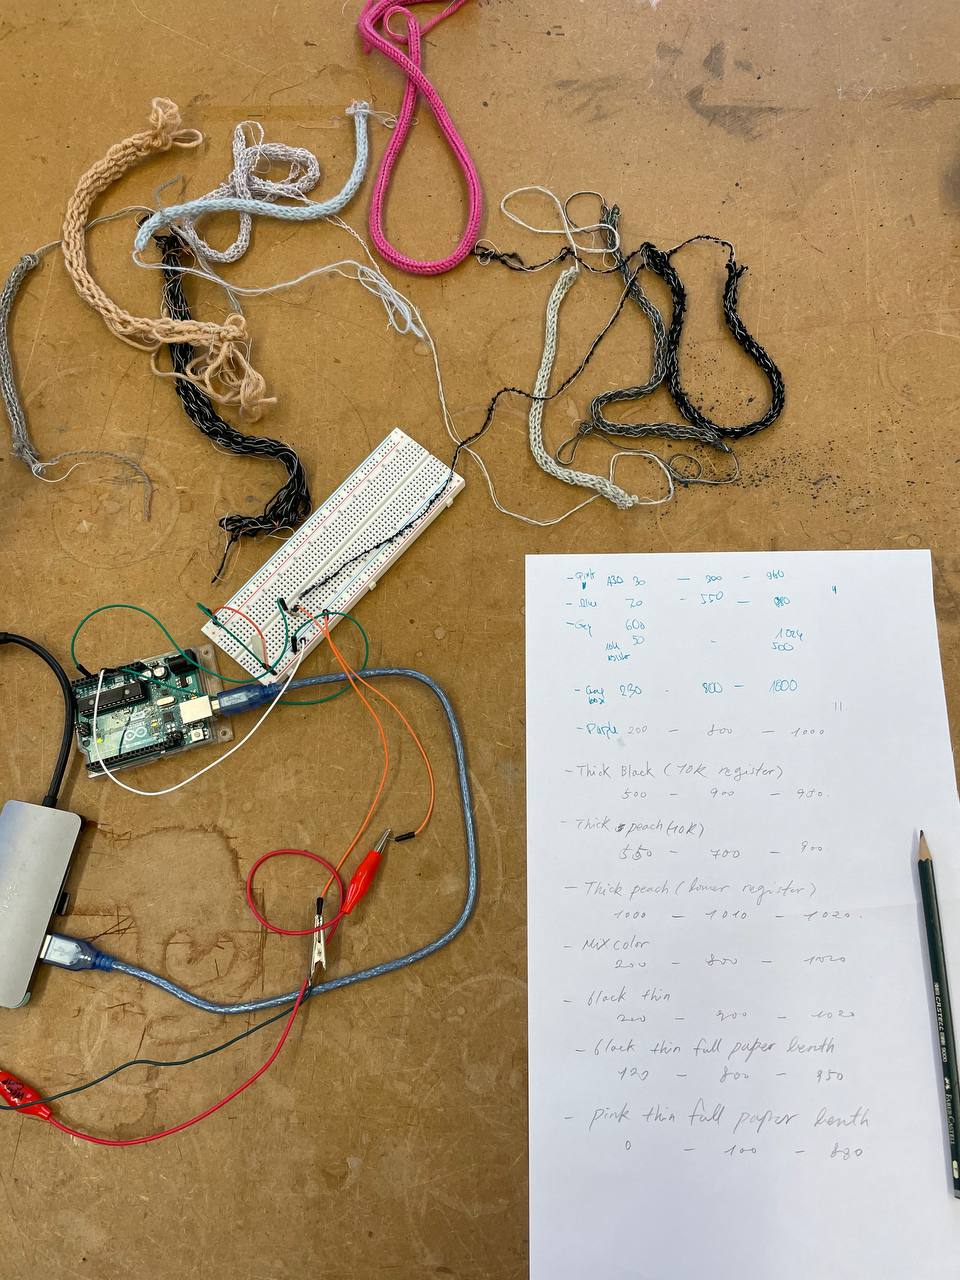 - Pink 30 - 300 - 960
- Blue 70 - 550 -
- Grey 600
50 - 1024
10k resistor 500
- Grey box 230 - 800 - 1000
- Purple 200 - 800 - 1000
- Thick Black (10K register)
500 - 900 - 950.
- Thick peach (10K)
550 - 700 - 900
- Thick peach (lower register)
1000 - 1010 - 1020.
- Mix color
200 - 800 - 1020
- black thin
200 - 900 - 1020
- black thin full paper lenth
120 - 800 - 950
- pink thin full paper lenth
0 - 100 - 880
CASTELL 9000
FABER-CASTELL